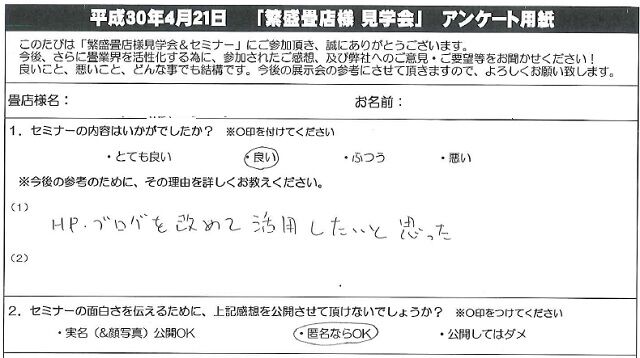 平成30年4月21日 「繁盛畳店様 見学会」 アンケート用紙
このたびは「繁盛畳店様見学会&セミナー」にご参加頂き、誠にありがとうございます。
今後、さらに畳業界を活性化する為に、参加されたご感想、及び弊社へのご意見・ご要望等をお聞かせください！
良いこと、悪いこと、どんな事でも結構です。今後の展示会の参考にさせて頂きますので、よろしくお願い致します。
畳店様名： お名前：
1．セミナーの内容はいかがでしたか？ ※〇印を付けてください
・とても良い ・良い ・ふつう ・悪い
※今後の参考のために、その理由を詳しくお教えください。
(1)
HP・ブログを改めて活用したいと思った
(2)
2．セミナーの面白さを伝えるために、上記感想を公開させて頂けないでしょうか？ ※〇印をつけてください
・実名（&顔写真）公開OK ・匿名ならOK ・公開してはダメ